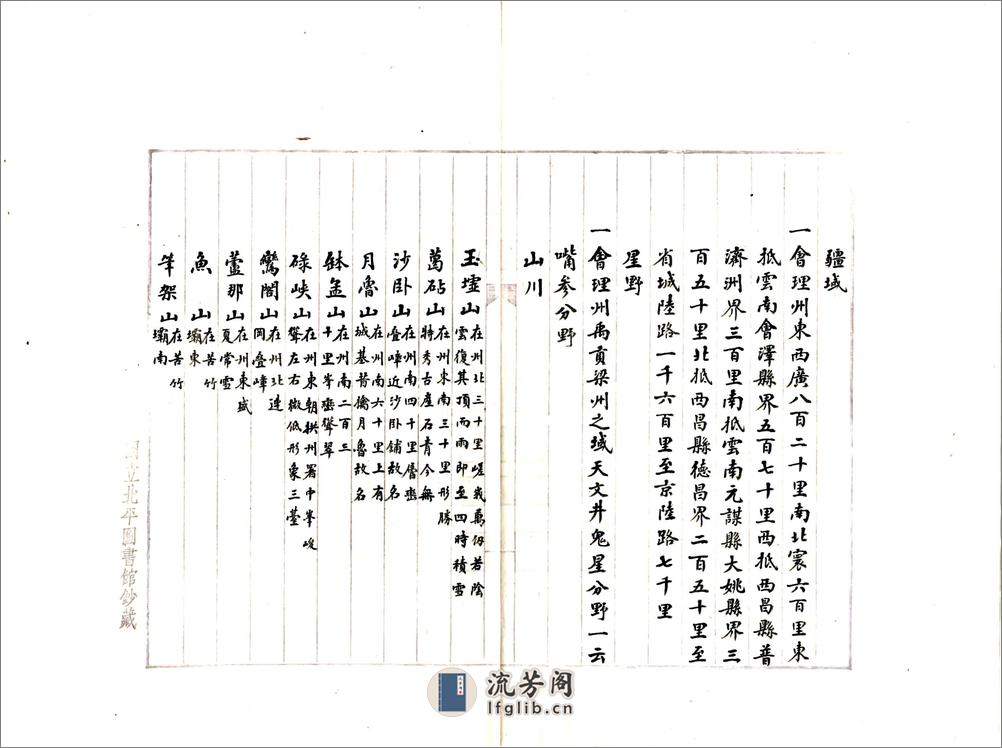 疆域
一會理州東西廣八百二十里南北袤六百里東
抵雲南會澤縣界五百七十里西抵西昌縣普
濟洲界三百里南抵雲南元謀縣大姚縣界三
百五十里北抵西昌縣德昌界二百五十里至
省城陸路一千六百里至京陸路七千里
星野
一會理州禹貢梁州之域天文井鬼星分野一云
嘴參分野
山川
玉墟山在州北三十里嵯峩萬仞若陰
雲復其頂而雨即至四時積雪
葛砧山在州東南三十里形勝
特秀古産石青今無
沙卧山在州南四十里層巒
叠嶂近沙卧鋪故名
月魯山在州南六十里上有
城基昔擒月魯故名
鉢盂山在州南二百三
十里岑巒聳翠
碌峽山在州東朝拱州署中峯峻
聳左右微低形象三薹
鸞閣山在州北連
岡叠嶂
蘆那山在州東盛
夏常雪
魚山在苦竹
壩東
筆架山在苦竹
壩南
國立北平圖書館鈔藏
流芳阁
lfglib.cn